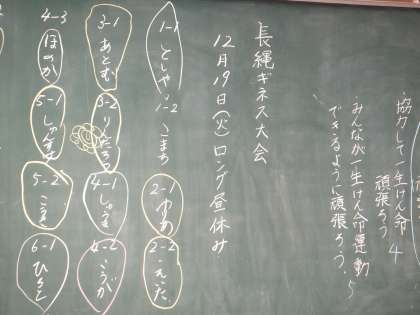 協力して一生けん命
頑張ろう 4
みんなが一生けん命運動
できるように頑張ろう。5
長縄ギネス大会
12月19日(火)ロング昼休み
1-1 としや
1-2 こまち
2-1 ゆあ
2-2
3-1 あとむ
3-2 りたろう
4-1
4-2 こうが
4-3 ほのか
5-1
5-2
6-1